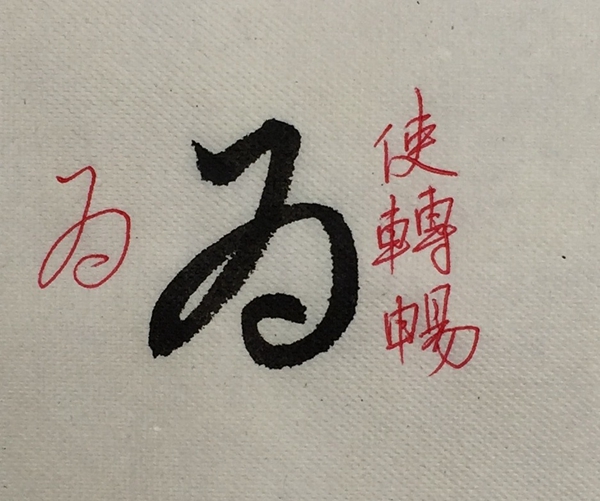 使轉暢
為
為